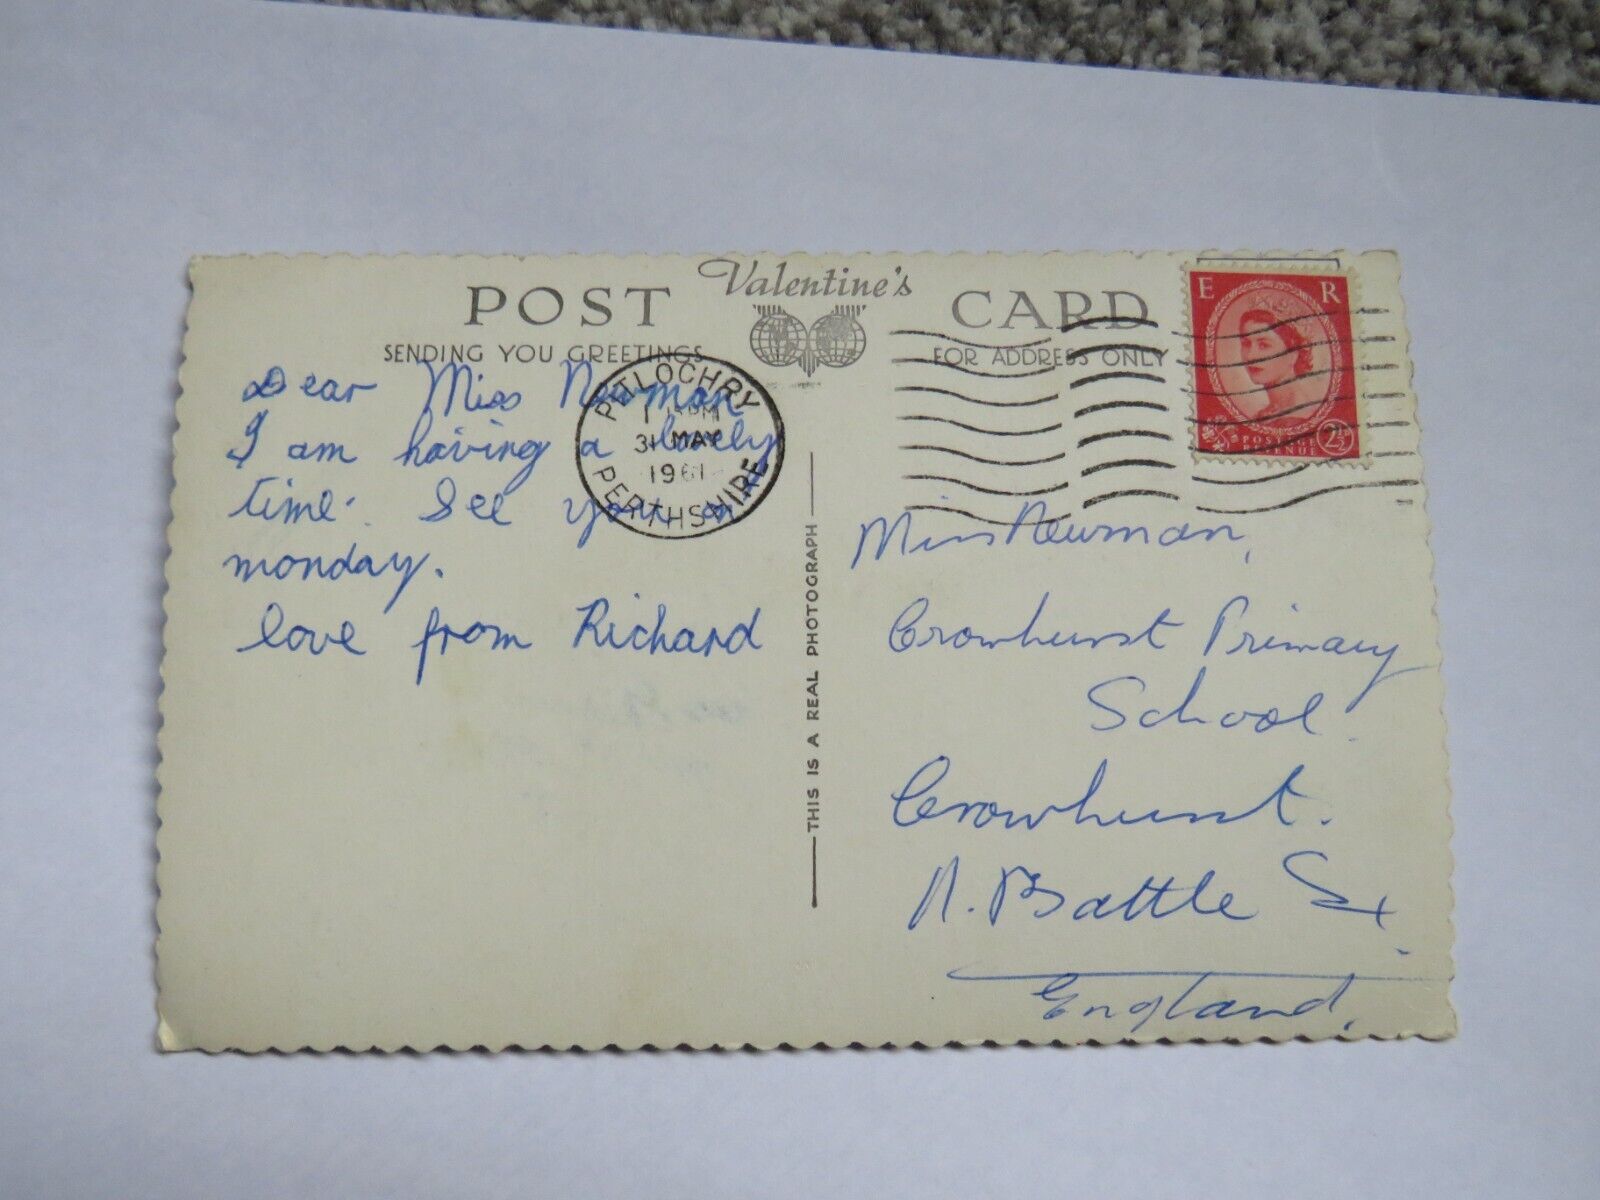 Valentine's
POST CARD
SENDING YOU GREETINGS
FOR ADDRESS ONLY
E R
POSTAGE
REVENUE
2½
PITLOCHRY
PM
31 MAY
1961
PERTHSHIRE
Dear Miss Newman
I am having a lovely
time. See you on
monday.
love from Richard
THIS IS A REAL PHOTOGRAPH
Miss Newman,
Crowhurst Primary
School.
Crowhurst.
N. Battle Sx.
England.